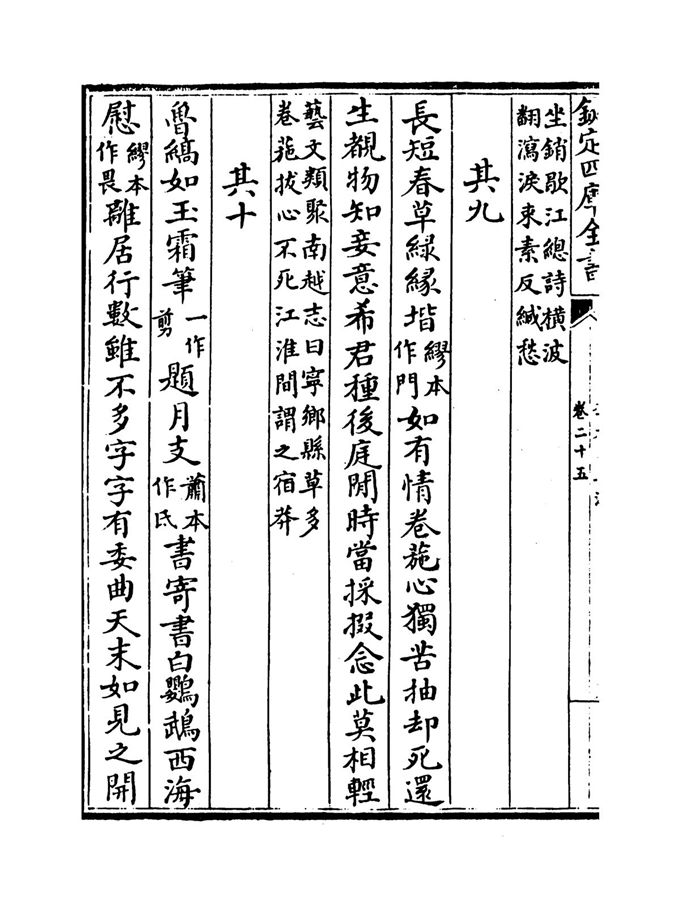 欽定四庫全書
卷二十五
坐銷歇江總詩橫波
翻瀉淚束素反緘愁
其九
長短春草綠緣堦繆本作門如有情卷葹心獨苦抽却死還
生覩物知妾意希君種後庭閒時當採掇念此莫相輕
藝文類聚南越志曰寧鄉縣草多
卷葹拔心不死江淮間謂之宿莽
其十
魯縞如玉霜筆一作剪題月支蕭本作氏書寄書白鸚鵡西海
慰繆本作畏離居行數雖不多字字有委曲天末如見之開